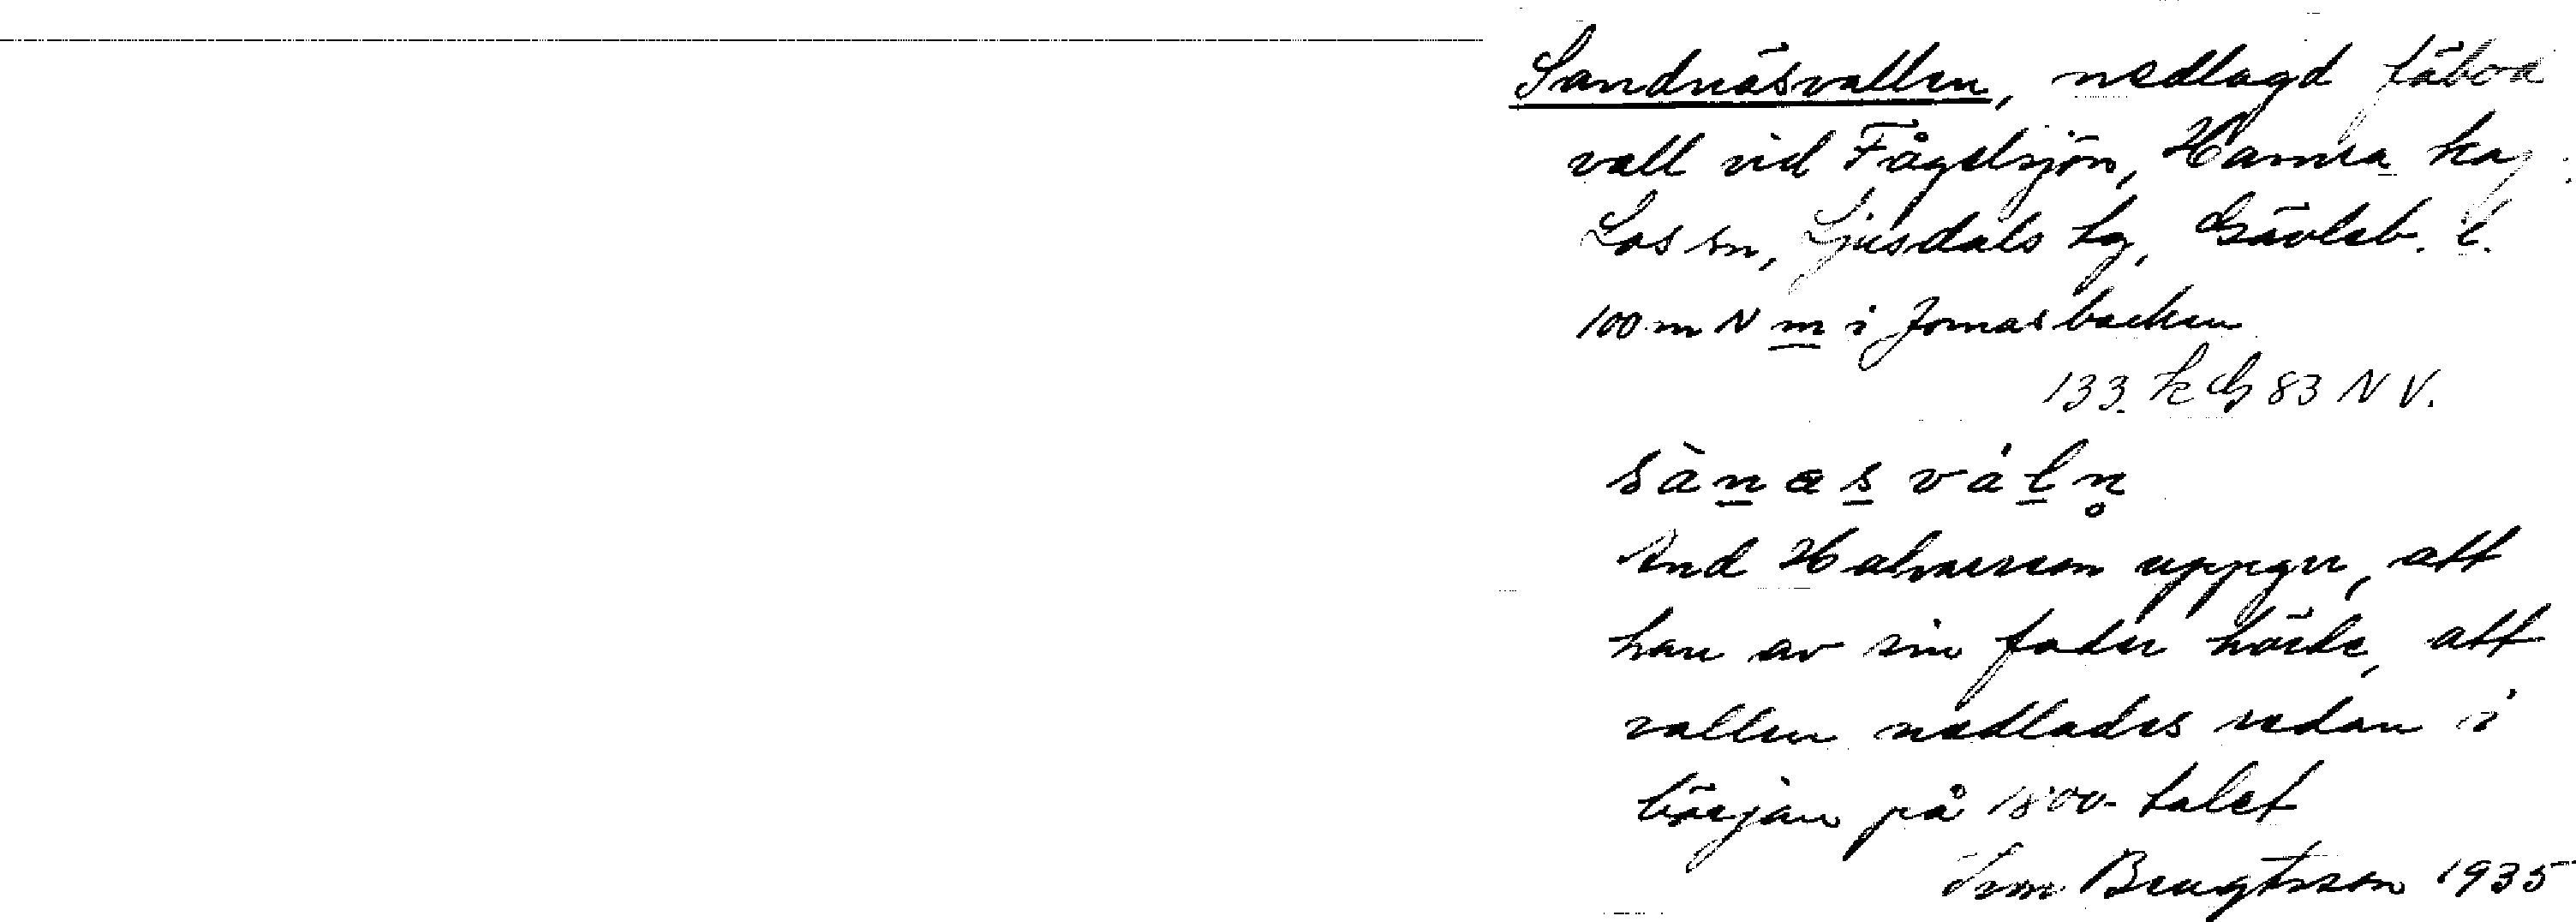 Sandnäsvallen, nedlagd fäbod
vall vid Fågelsjön, Hamra kap.
Los sn, Ljusdals tg, Gävleb. l.
100 m N m i Jonasbacken
133. k G 83 N V.
sànæsvàln̥
And Halvarsson uppger, att
han av sin fader hörde, att
vallen nedlades redan i
början på 1800-talet
Bengtsson 1935